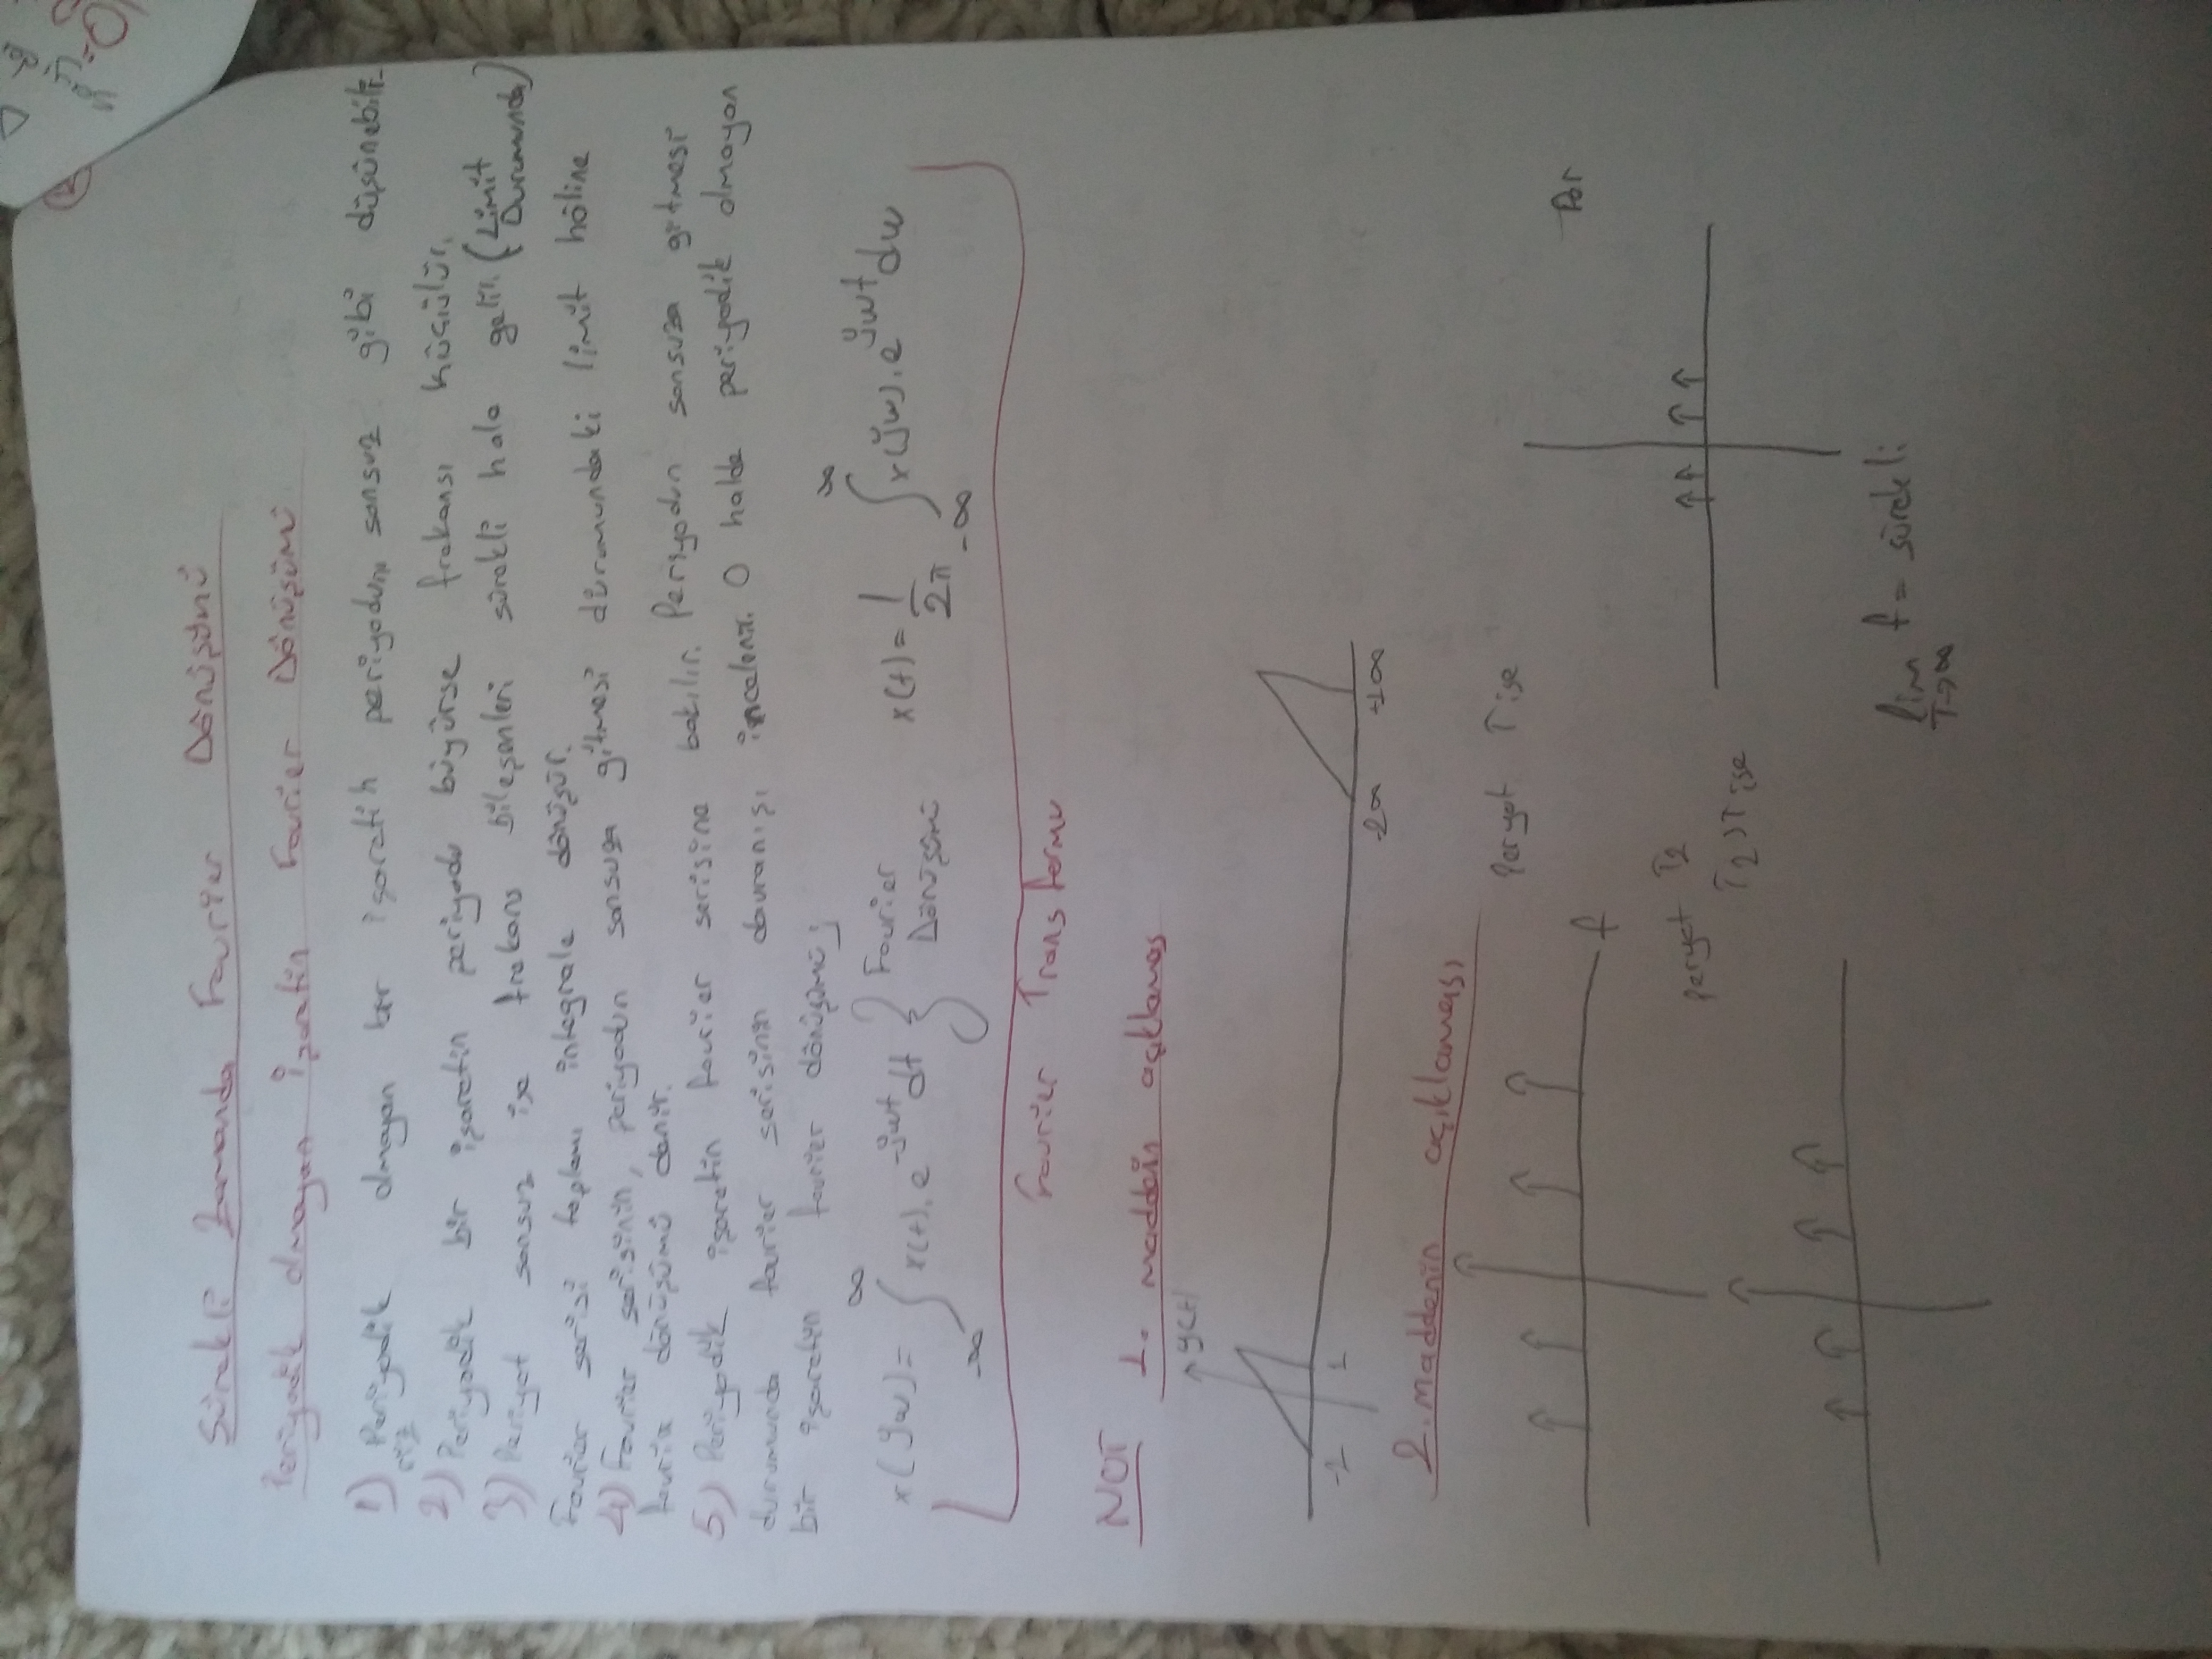 Sürekli Zamanda Fourier Dönüşümü
Periyodik olmayan işaretin Fourier Dönüşümü
1) Periyodik olmayan bir işaretin periyodunu sonsuz gibi düşünebili-
riz
2) Periyodik bir işaretin periyodu büyürse frekansı küçülür.
3) Periyot sonsuz ise frekans bileşenleri sürekli hale gelir. (Limit Durumunda)
Fourier serisi toplamı integrale dönüşür.
4) Fourier serisinin, periyodun sonsuza gitmesi durumundaki limit hâline
fourier dönüşümü denir.
5) Periyodik işaretin fourier serisine bakılır. Periyodun sonsuza gitmesi
durumunda fourier serisinin davranışı incelenir. O halde periyodik olmayan
bir işaretin fourier dönüşümü;
x(jw) = ∫_{-∞}^{∞} x(t). e^{-jwt} dt } Fourier Dönüşümü x(t) = 1/2π ∫_{-∞}^{∞} x(jw). e^{jwt} dw
Fourier Transformu
NOT 1. maddenin açıklaması
y(t)
-1 1
2. maddenin açıklaması
Peryot T ise
f
peryot T2
T2 > T ise
lim T→∞ f = sürekli